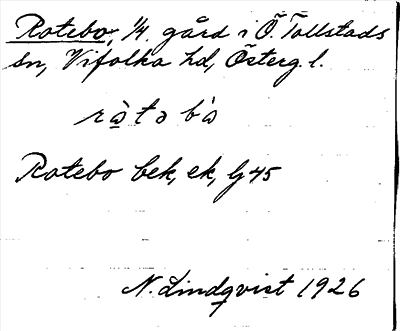 Rotebo, 1/4 gård i Ö. Tollstads
sn, Vifolka hd, Österg. l.
Rotebo bek, ek, G 45
N. Lindqvist 1926